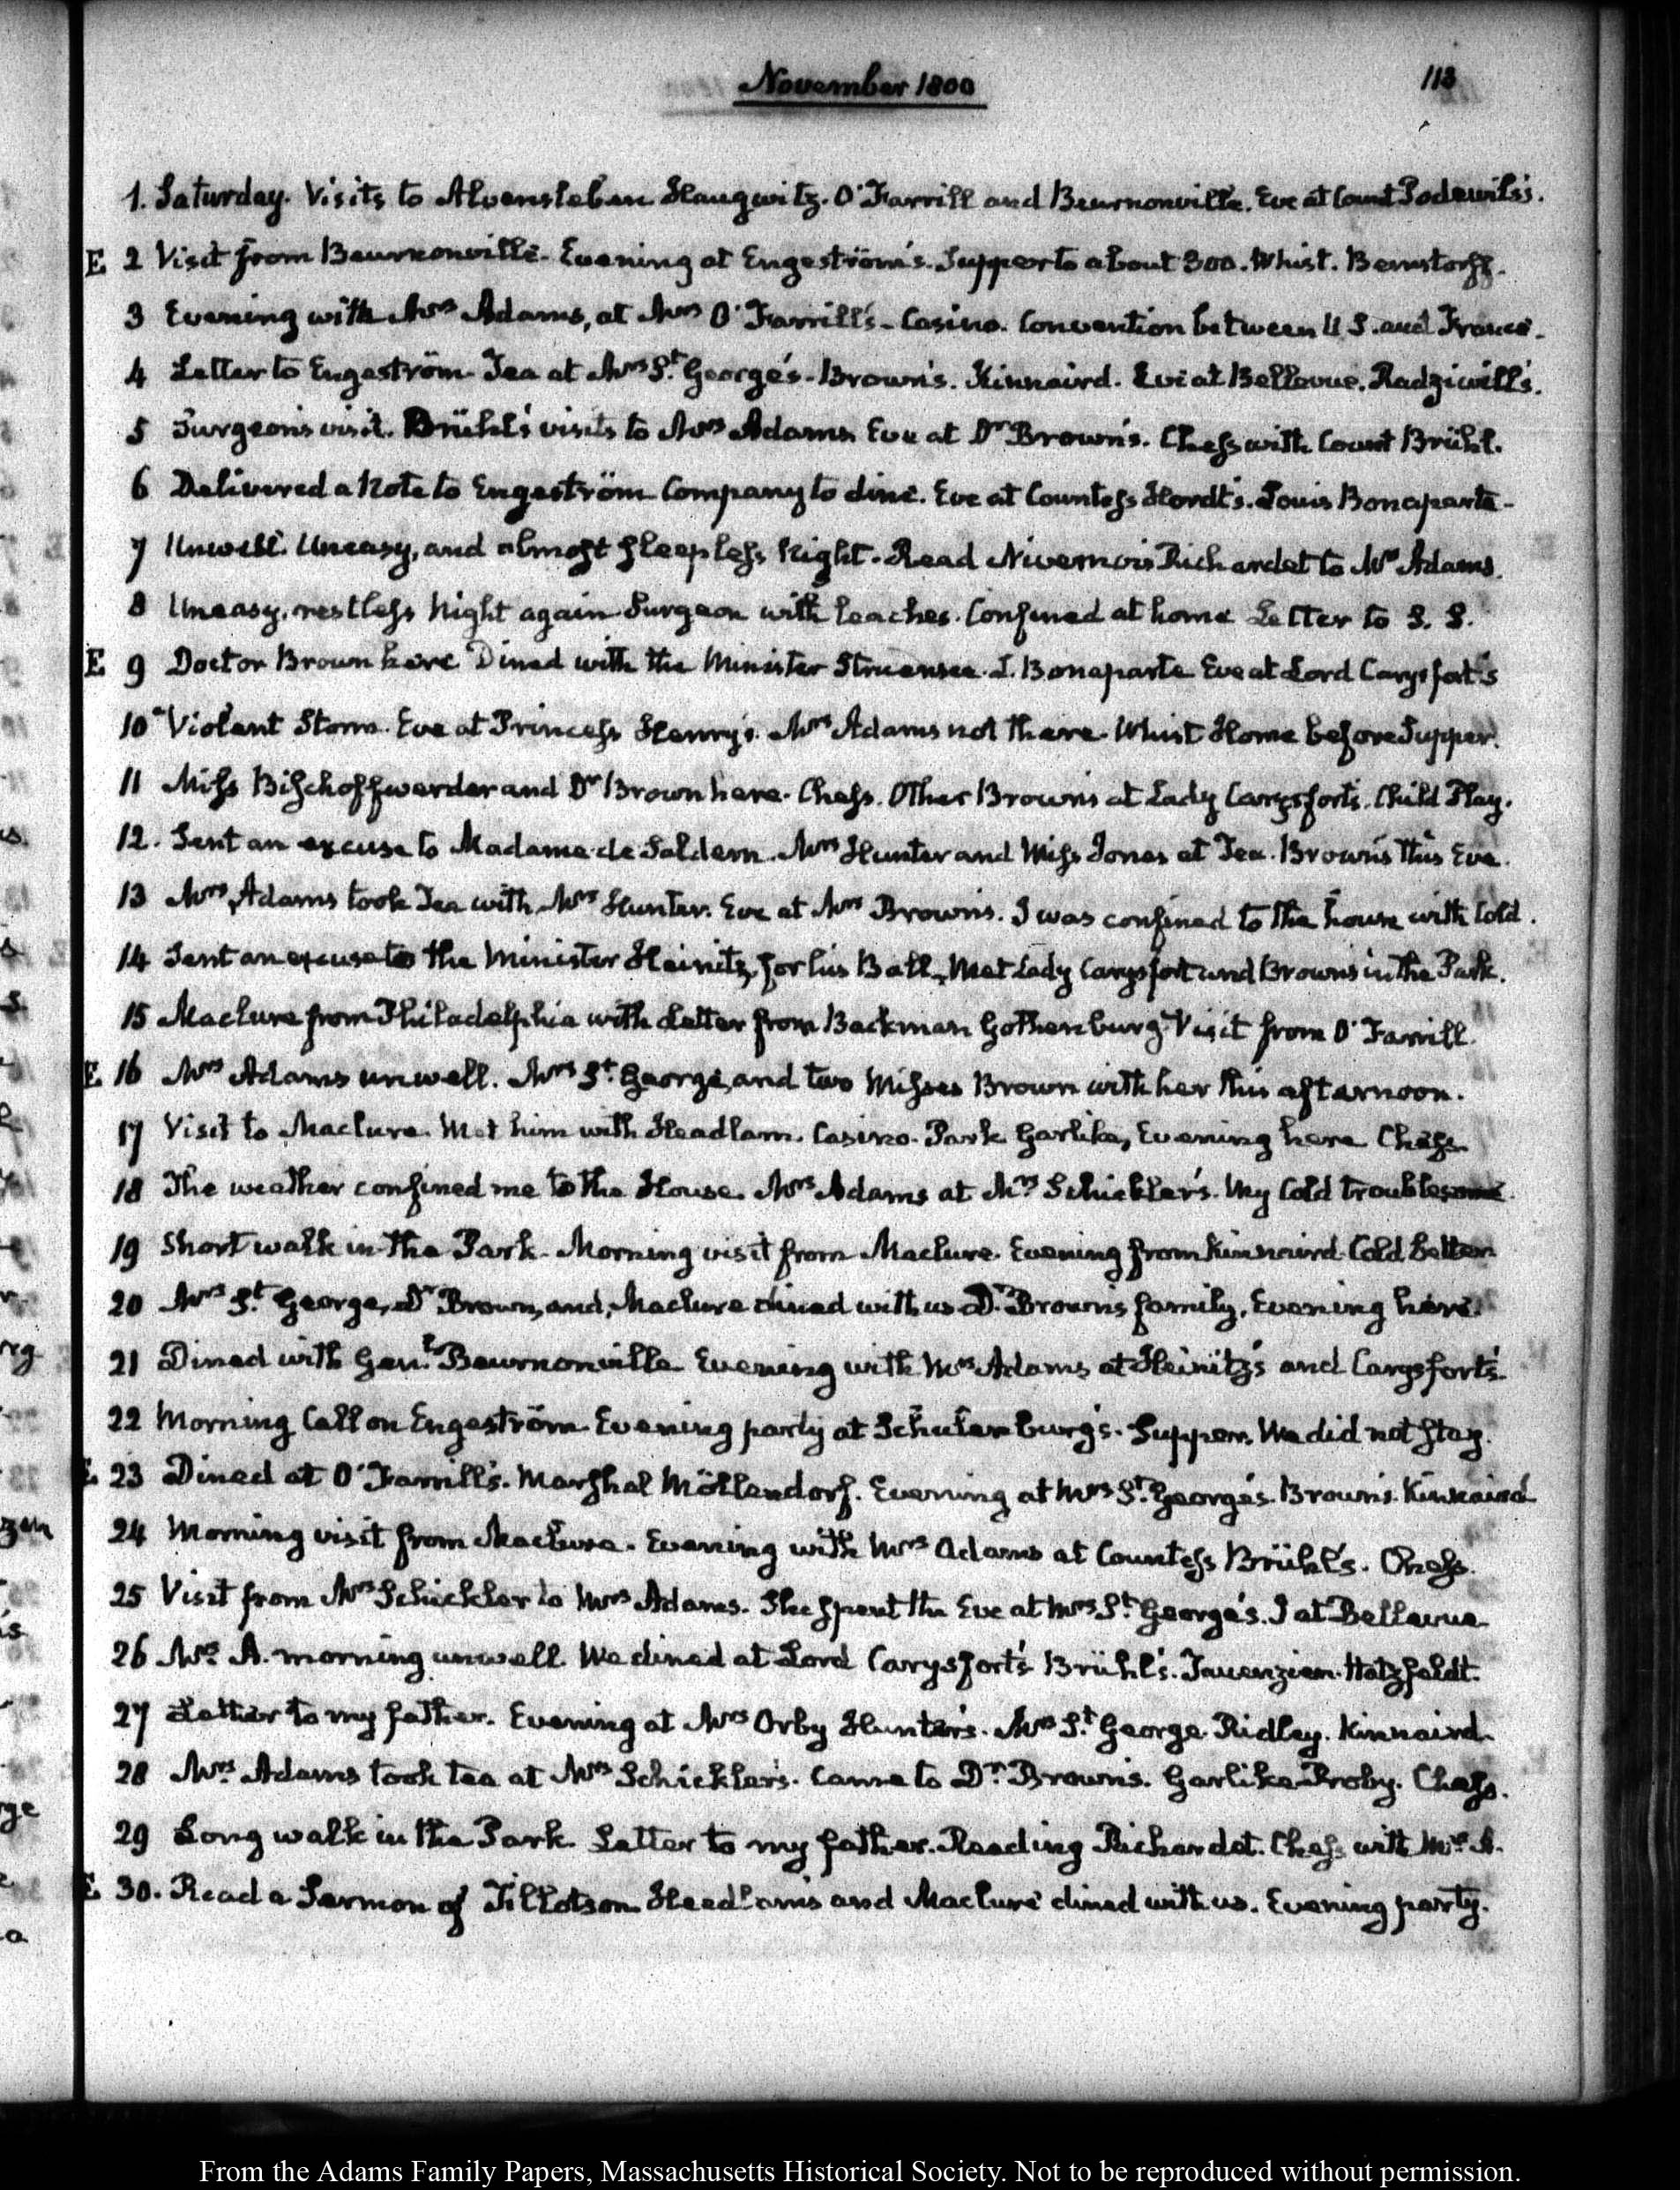 November 1800
113
1. Saturday. Visits to Alvensleben Haugwitz. O'Farrill and Beurnonville. Eve at Count Podewils's.
E 2 Visit from Beurnonville. Evening at Engeström's. Supper to about 300. Whist. Bernstorff.
3 Evening with Mrs Adams, at Mrs O'Farrill's. Casino. Convention between U S. and France.
4 Letter to Engeström. Tea at Mrs St. George's. Brown's. Kinnaird. Eve at Bellevue. Radziwill's.
5 Surgeon's visit. Brühl's visits to Mrs Adams Eve at Dr Brown's. Chess with Count Brühl.
6 Delivered a Note to Engeström Company to dine. Eve at Countess Hordt's. Louis Bonaparte.
7 Unwell. Uneasy, and almost sleepless Night. Read Nivernois Richardet to Mrs Adams.
8 Uneasy, restless Night again. Surgeon with leaches. Confined at home Letter to S. S.
E 9 Doctor Brown here Dined with the Minister Struensee. L. Bonaparte Eve at Lord Carysfort's
10 Violent Storm. Eve at Princess Henry's. Mrs Adams not there. Whist Home before Supper.
11 Miss Bischoffwerder and Dr Brown here. Chess. Other Browns at Lady Carysfort's. Child Play.
12. Sent an excuse to Madame de Saldern. Mrs Hunter and Miss Jones at Tea. Browns this Eve.
13 Mrs Adams took Tea with Mrs Hunter. Eve at Mrs Browns. I was confined to the house with Cold.
14 Sent an excuse to the Minister Heinitz, for his Ball. Met Lady Carysfort and Browns in the Park.
15 Maclure from Philadelphia with Letter from Backman Gothenburg. Visit from O'Farrill.
E 16 Mrs Adams unwell. Mrs St. George, and two Misses Brown with her this afternoon.
17 Visit to Maclure. Met him with Headlam. Casino. Park Garlike, Evening here Chess.
18 The weather confined me to the House. Mrs Adams at Mrs Schickler's. My Cold troublesome.
19 Short walk in the Park. Morning visit from Maclure. Evening from Kinnaird. Cold better
20 Mrs St. George, Dr Brown, and, Maclure dined with us Dr. Browns family, Evening here.
21 Dined with Genl. Beurnonville Evening with Mrs Adams at Heinitz's and Carysfort's.
22 Morning Call on Engeström. Evening party at Schulenburg's. Supper. We did not stay.
E 23 Dined at O'Farrill's. Marshal Möllendorf. Evening at Mrs St. George's. Browns. Kinnaird
24 Morning visit from Maclure. Evening with Mrs Adams at Countess Brühl's. Chess.
25 Visit from Mrs Schickler to Mrs Adams. She spent the Eve at Mrs St. George's. I at Bellevue
26 Mrs A. morning unwell We dined at Lord Carysfort's Brühl's. Tauenzien. Hatzfeldt.
27 Letter to my father. Evening at Mrs Orby Hunter's. Mrs St. George. Ridley. Kinnaird.
28 Mrs. Adams took tea at Mrs Schickler's. Came to Dr. Browns. Garlike Proby. Chess.
29 Long walk in the Park. Letter to my father. Reading Richardet. Chess with Mrs. A.
E 30. Read a Sermon of Tillotson. Headlam's and Maclure dined with us. Evening party.
From the Adams Family Papers, Massachusetts Historical Society. Not to be reproduced without permission.